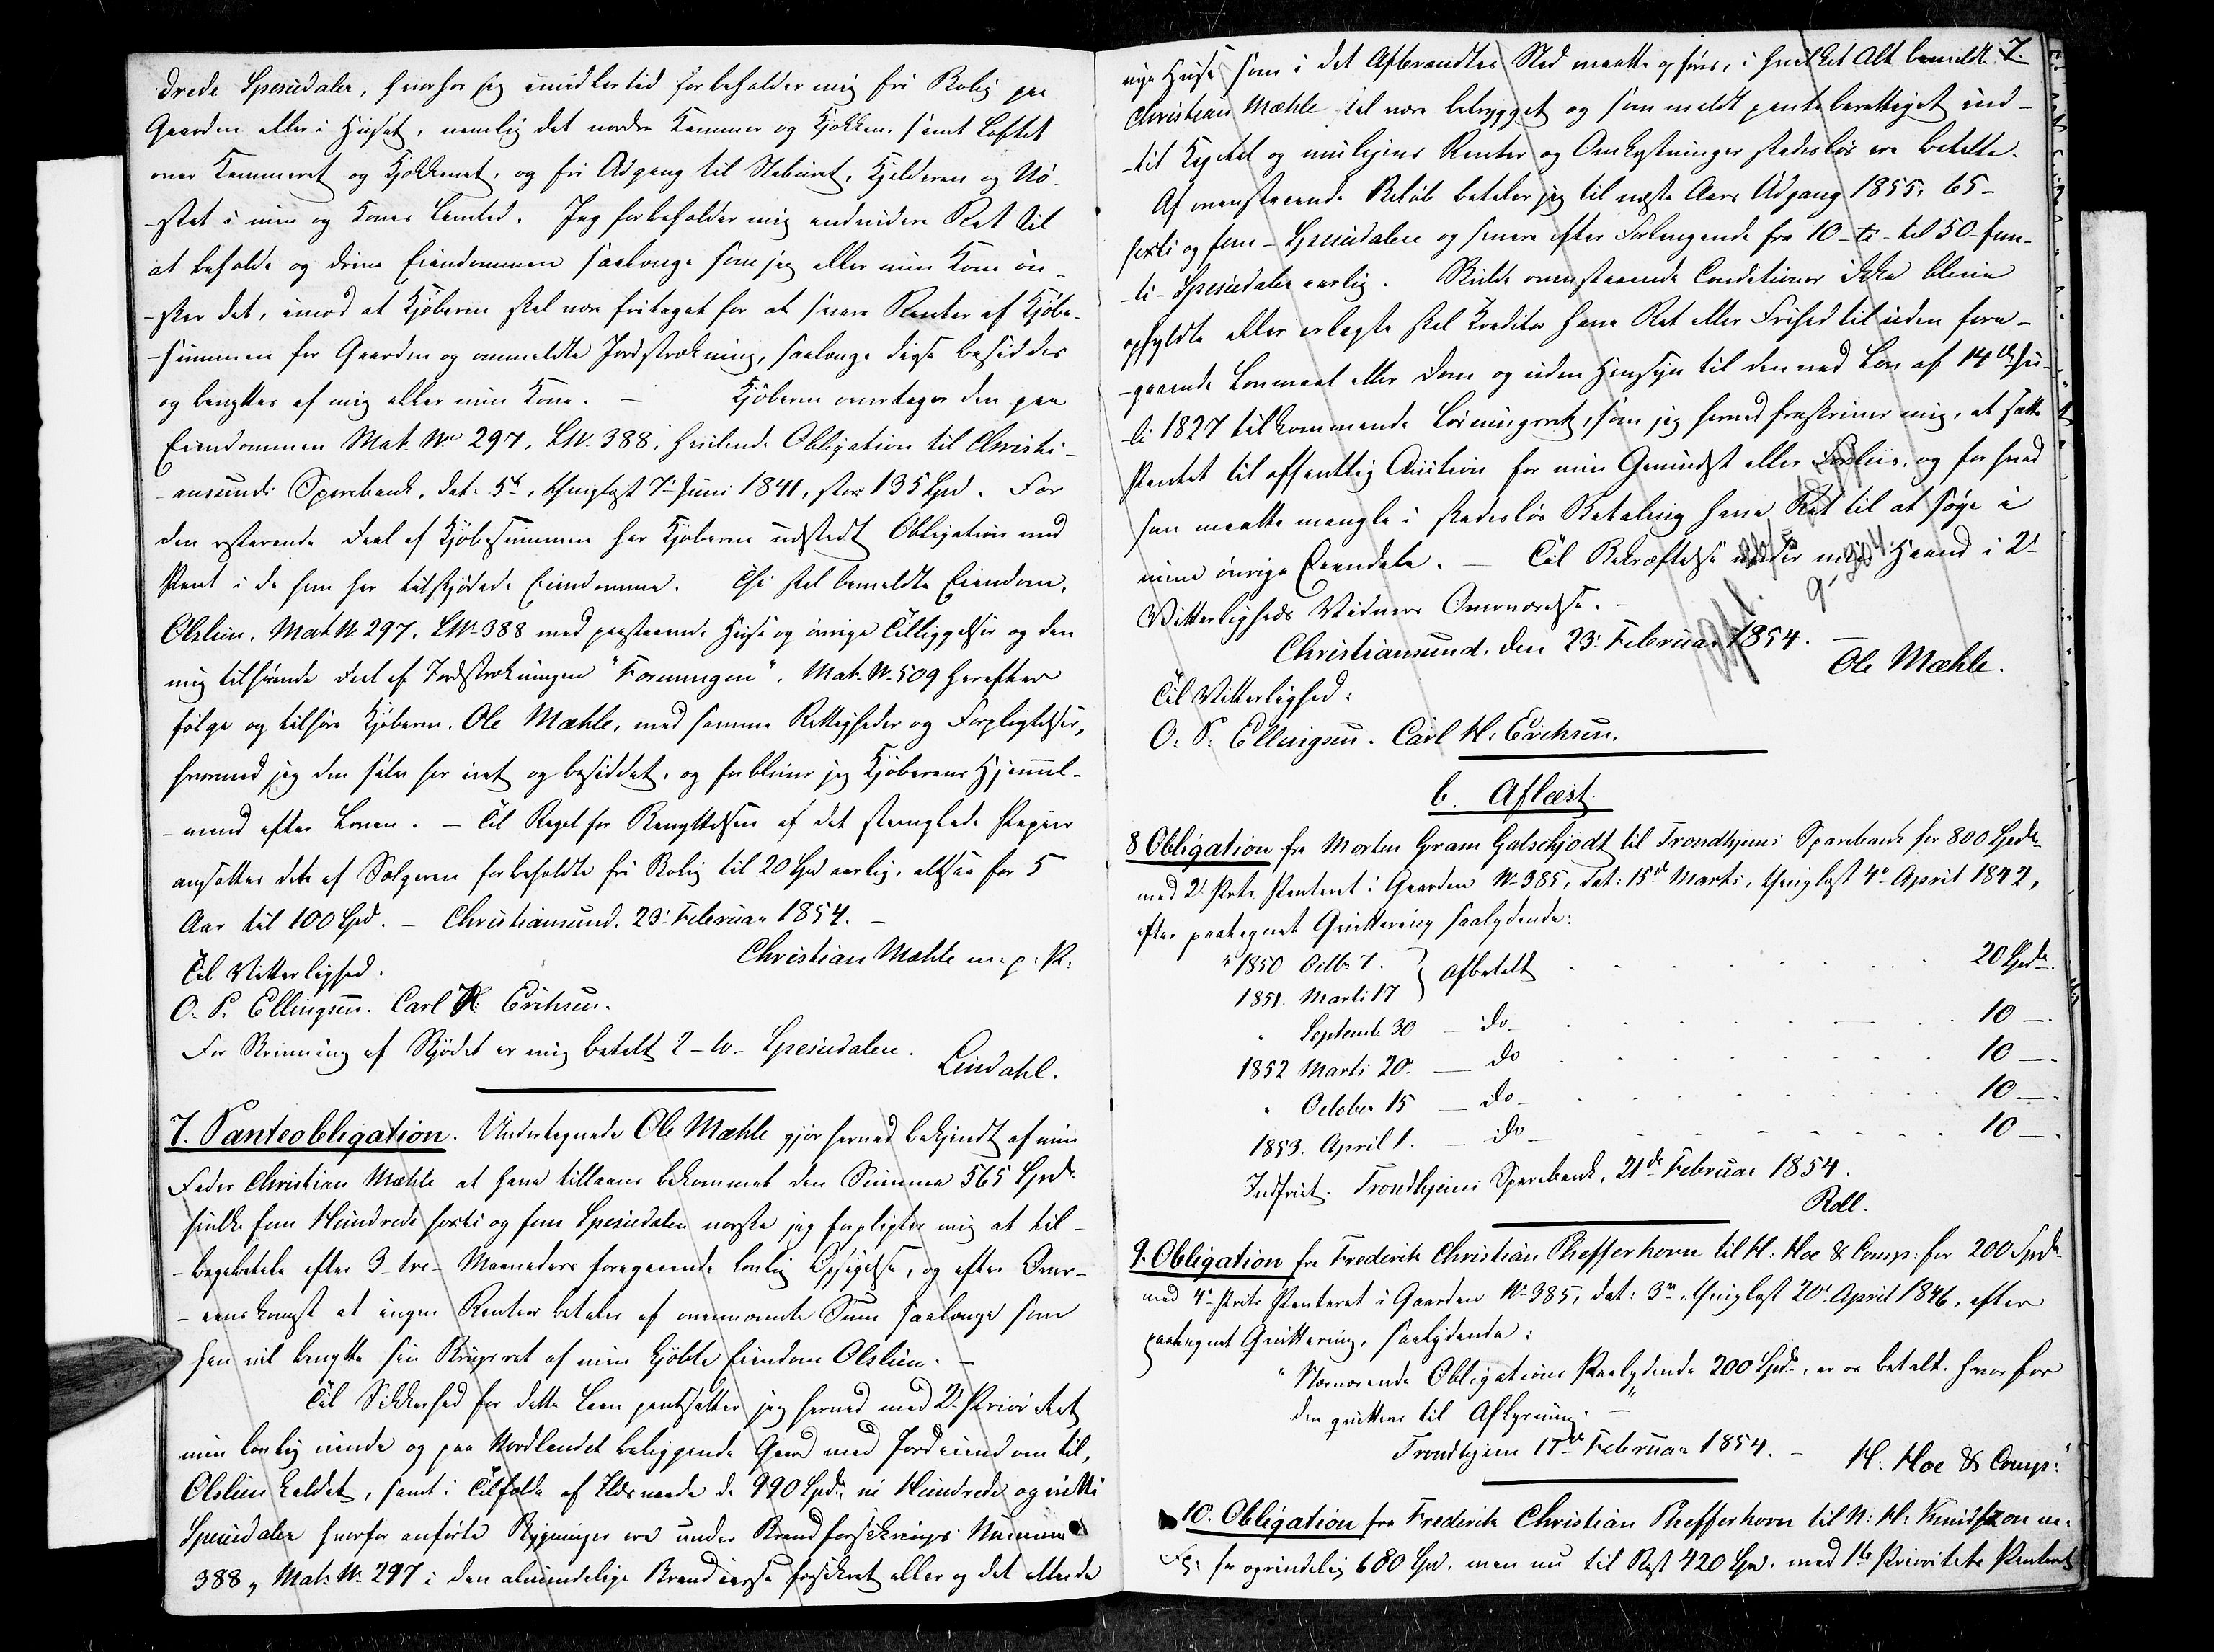 drede Speciedaler, hvorhos jeg imidlertid forbeholder mig fri Bolig paa
Gaarden eller i Huset, nemlig det nordre Kammer og Kjøkken, samt Loftet
over Kammeret og Kjøkkenet, og fri Adgang til Staburet, Kjelderen og Nö-
-stet i min og Kones Levetid. Jeg forbeholder mig endvidere Ret til
at beholde og drive Eiendommen saalænge som jeg eller min Kone ön-
-sker det, imod at Kjøberen skal være fritaget for at svare Renter af Kjøbe-
-summen for Gaarden og ommeldte Jordstrækning, saalænge disse besiddes
og benyttes af mig eller min Kone. — Kjøberen overtager den paa
Eiendommen Mat. No 297, LNr. 388, hvilende Obligation til Christi-
-ansunds Sparebank, dat. 5te, thinglæst 7de Juni 1841, stor 135 Spd. For
den resterende Deel af Kjøbesummen har Kjøberen udstedt Obligation med
Pant i de ham her tilskjødede Eiendomme. Thi skal bemeldte Eiendom,
Olslien, Mat. No 297, LNo 388 med paastaaende Huse og øvrige Tilliggelser og den
mig tilhørende Deel af Jordstrækningen "Formyngen". Mat. No. 509 herefter
følge og tilhøre Kjøberen, Ole Mæhle, med samme Rettigheder og Forpligtelser,
hvormed jeg den selv har eiet og besiddet, og forbliver jeg Kjøberens Hjemmel-
-mand efter Loven. — Til Regel for Benyttelsen af det stemplede Papiir
ansættes dette af Sælgeren forbeholdte fri Bolig til 20 Spd aarlig, altsaa for 5
Aar til 100 Spd. — Christiansund, 23de Februar 1854. —
Christian Mæhle m. p. P.
Til Vitterlighed.
O. P. Ellingsen. Carl H. Erichsen.
For Skrivning af Skjødet er mig betalt 2 - to - Speciedaler.
Lindahl.
7. Panteobligation. Undertegnede Ole Mæhle gjør herved bekjendt af min
Fader Christian Mæhle at have tillaans bekommet den Summa 565 Spdr
hvilke fem Hundrede sexti og fem Speciedaler norske jeg forpligter mig at til-
-bagebetale efter 3 - tre - Maaneders foregaaende lovlig Opsigelse, og efter Over-
-eenskomst at ingen Renter betales af ovennævnte Sum saalænge som
han vil benytte sin Brugsret af min kjøbte Eiendom Olslien. —
Til Sikkerhed for dette Laan pantsætter jeg herved med 2den Prioritet
min lovlig eiende og paa Nordlandet beliggende Gaard med Jordeiendom til,
Olslien kaldet, samt i Tilfælde af Ildsvaade de 990 Spdr, ni Hundrede og nitti
Speciedaler hvorfor anførte Bygninger ere under Brandforsikrings Nummer
388, Mat. No. 297 i den almindelige Brandcasse forsikret eller og det eller de
7.
nye Huse som i det Afbrændtes Sted maatte opføres, i hvilket Alt bemeldte
Christian Mæhle skal være betrygget og som meldt panteberettiget ind-
-til Kapital og muligens Renter og Omkostninger skadesløs ere betalte.
Af ovenstaaende Beløb betaler jeg til næste Aars Udgang 1855, 65 -
sexti og fem - Speciedaler og senere efter Forlangende fra 10 - ti - til 50 - fem-
-ti - Speciedaler aarlig. Skulde ovenstaaende Conditioner ikke blive
opfyldte eller erlagte skal Kreditor have Ret eller Frihed til uden fore-
-gaaende Lovmaal eller Dom og uden Hensyn til den ved Lov af 14de Ju-
-li 1827 tilkommende Løsningsret, som jeg herved fraskriver mig, at sætte
Pantet til offentlig Auction for min Gevindst eller Forliis, og for hvad
han maatte mangle i skadesløs Betaling have Ret til at søge i
mine øvrige Eiendele. — Til Bekræftelse under min Haand i 2de
Vitterligheds Vidners Overværelse. —
Christiansund, den 23de Februar 1854. —
Ole Mæhle.
Til Vitterlighed:
O: P: Ellingsen. Carl H: Erichsen.
b. Aflæst.
8 Obligation fra Morten Gram Galschjødt til Trondhjems Sparebank for 800 Spdr
med 2den Prts Panteret i Gaarden No 385, dat: 15de Marts, thinglæst 4de April 1842,
efter paategnet Qvittering saalydende:
"1850 Octbr 7. } afbetalt . . . 20 Spdr.
1851. Marts 17
" Septembr 30 — do — . . . 10 —.
1852 Marts 20. — do . . . 10 —.
" October 15 — do — . . . 10 —.
1853. April 1. — do — . . . 10 —.
Indfriet. Trondhjems Sparebank, 21de Februar 1854.
Roll.
9. Obligation fra Frederik Christian Phefferhorn til H: Hoe & Comp: for 200 Spdr
med 4de Prts Panteret i Gaarden No 385, dat: 3die, thinglæst 20de April 1846, efter
paategnet Qvittering, saalydende:
"Nærværende Obligations Paalydende 200 Spdr., er os betalt, hvorfor
den qvitteres til Aflysning."
Trondhjem 17de Februar 1854. —
H. Hoe & Comp:"
10. Obligation fra Frederik Christian Phefferhorn til N: H: Knudtzon m.
Fl: for oprindelig 680 Spd. men nu til Rest 420 Spd. med 1ste Prioritets Panteret